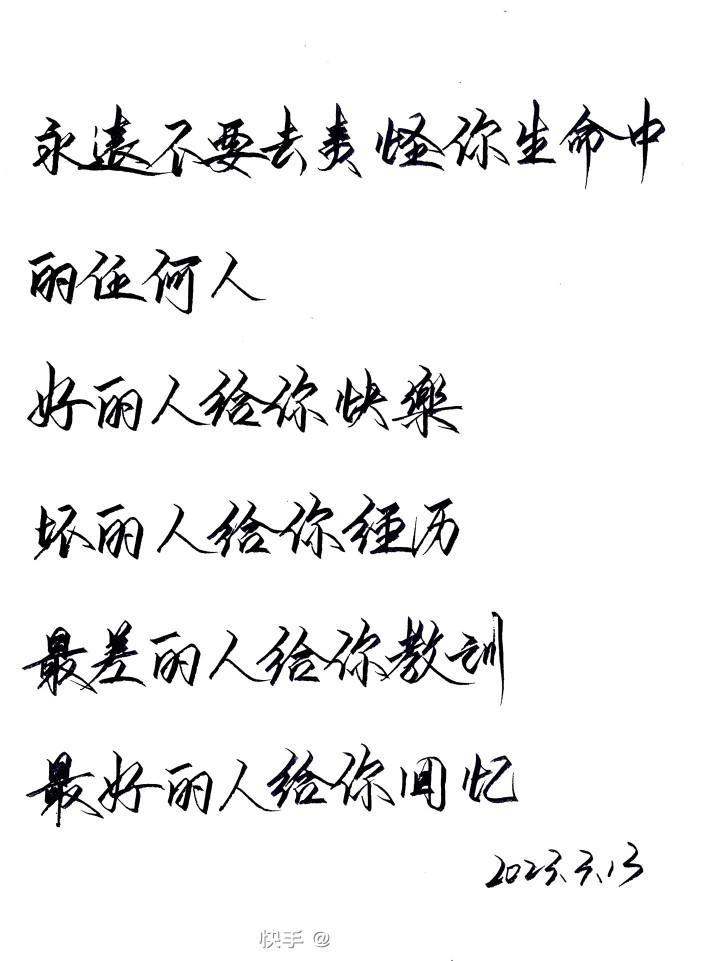 永遠不要去责怪你生命中
的任何人
好的人给你快樂
坏的人给你经历
最差的人给你教训
最好的人给你回忆
2023.3.13
快手 @